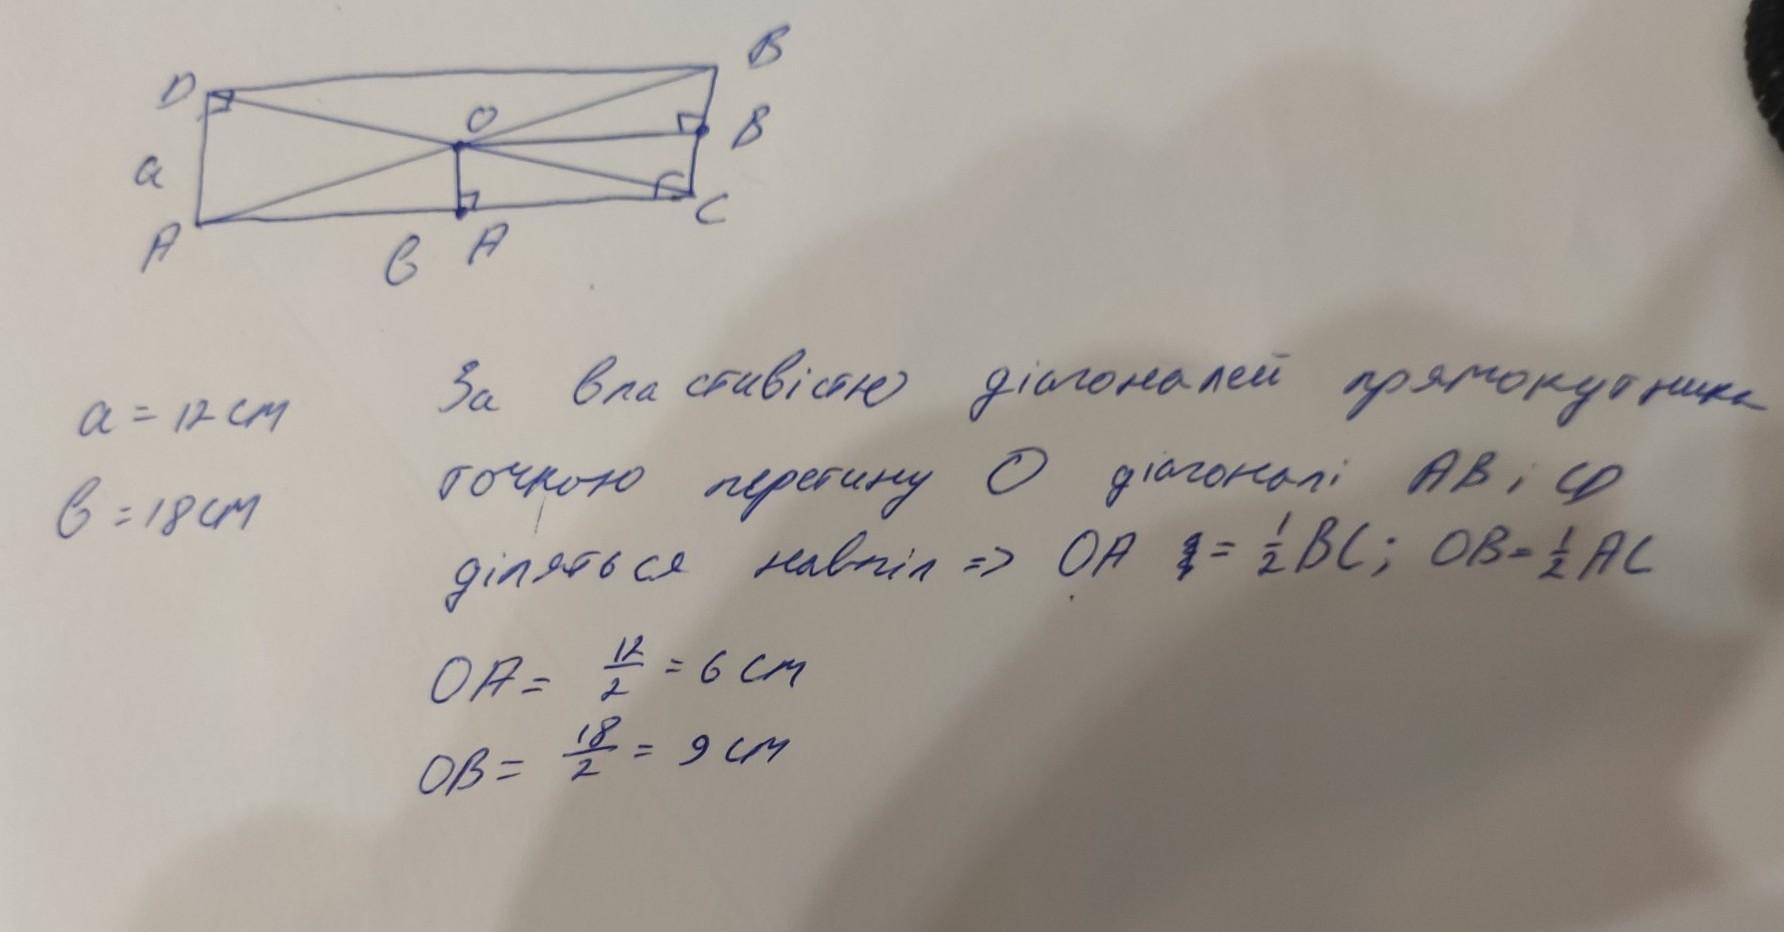 D
B
O
B
a
C
A
в
A
a = 12 см
в = 18 см
За властивістю діагоналей прямокутника
точкою перетину O діагоналі AB і CD
діляться навпіл => OA = 1/2 BC; OB = 1/2 AC
OA = 12/2 = 6 см
OB = 18/2 = 9 см